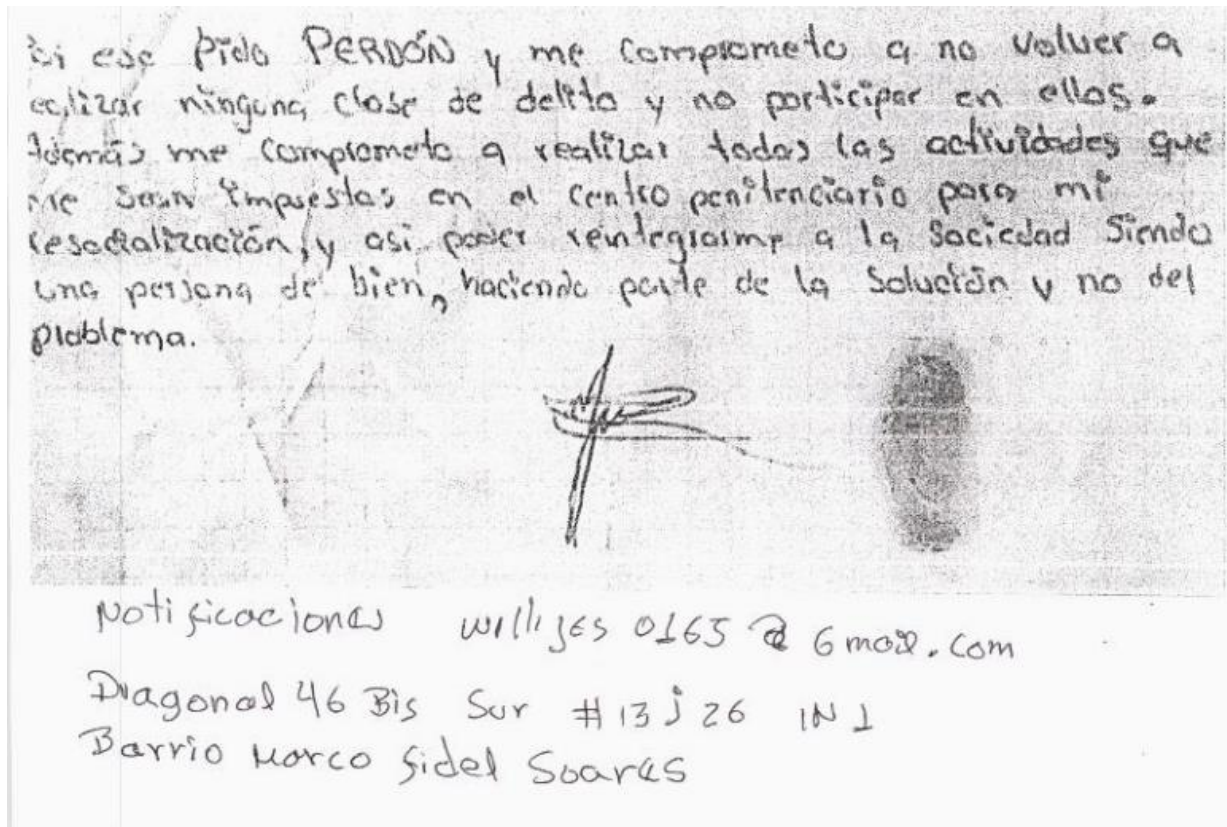 ese pido PERDÓN y me comprometo a no volver a
ealizar ninguna clase de delito y no participar en ellos.
Además me comprometo a realizar todas las actividades que
me sean impuestas en el centro penitenciario para mi
resocialización, y asi poder reintegrarme a la Sociedad Siendo
una persona de bien, haciendo parte de la Solución y no del
problema.
Notificaciones 0165 @ Gmail.com
Diagonal 46 Bis Sur # 13 j 26 IN 1
Barrio Marco fidel Soares